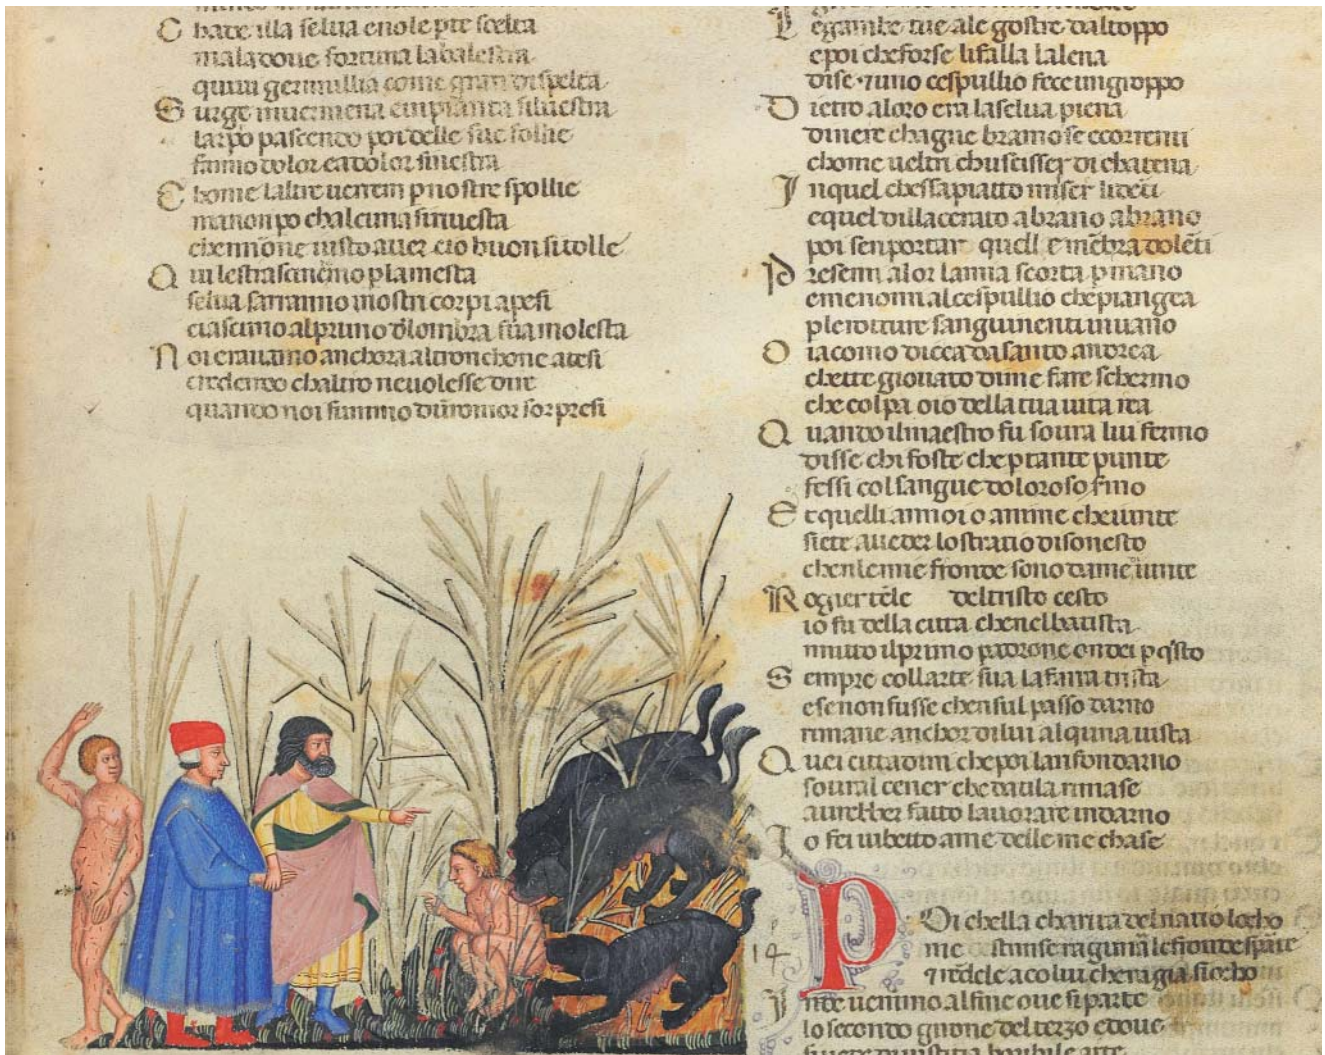 C hade illa selua enole pte scelta
mala doue fortuna la balestra
quiui germullia come gran dispelta
S urge inuermena empianta siluestra
larpo pascendo poi delle sue follie
fanno dolor ea dolor finestra
C home laltre uerrem p nostre spollie
ma non po chalcuna sinuesta
chennone iusto auer cio huon si tolle
Q ui lestrascinemo p lamesta
selua sarranno inostri corpi apesi
ciascuno alpruno dlombra sua molesta
N oi erauamo anchora altronchone atesi
credendo chaltro neuolesse dire
quando noi fummo dunromor sorpresi
L egambe tue ale gostre daltoppo
epoi cheforse lifalla lalena
dise 7 uno cespullio fece ungroppo
D ietro aloro era laselua piena
dinere chagne bramose ecorrenti
chome ueltri chuscisser di chatena
I nquel chessapiatto miser lidenti
equel dillacerato abrano abrano
poi senportar quell e mebra doleti
P resemi alor lamia scorta p mano
emenomi alcespullio chepiangea
ple rotture sanguinenti inuano
O iacomo dicea dasanto andrea
chette giouato dime fare schermo
che colpa oio della tua uita rea
Q uando ilmaestro fu soura lui fermo
disse chi foste che p tante punte
fessi col sangue doloroso fmo
E t quelli annoi o anime che iunte
siete aueder lo stratio disonesto
chenlemie fronde sono dame iunte
R ogiertele deltristo cesto
io fu della citta chenelbatista
muto ilprimo padrone ondei p qsto
S empre collarte sua lafara trista
ese non fusse chensul passo darno
rimane anchor dilui alquna uista
Q uei cittadini che poi lanfondarno
soural cener che daula rimase
aurebber fatto lauorare indarno
I o fei iubetto ame delle mie chase
14
P Oi chella charita delnatio locho
me strinse ragunai lefronde sparte
7 redele acolui chera gia fiocho
I nde uenimo alfine oue siparte
lo secondo girone del terzo edoue